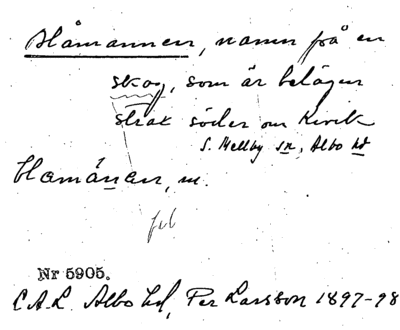 Blåmannen, namn på en
skog, som är belägen
strax söder om Kivik
S. Mellby sn, Albo hd
blamånen, m.
Nr 5905.
C.A.L. Albo hd, Per Larsson 1897-98